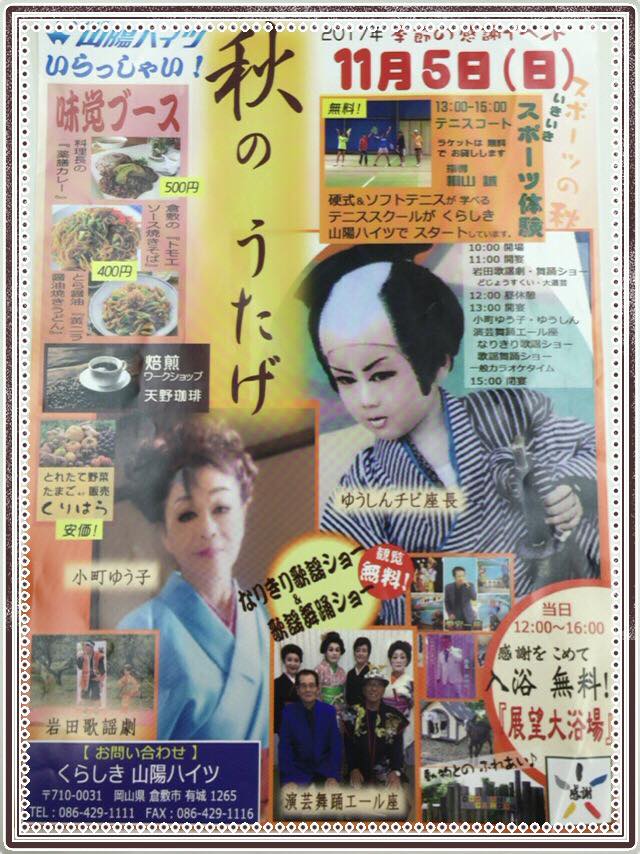 山陽ハイツ
いらっしゃい！
秋の うたげ
2017年 季節の感謝イベント
11月5日(日)
味覚ブース
料理長の
『薬膳カレー』
500円
倉敷の『トモエ
ソース焼きそば』
400円
とら醤油『黄ニラ
醤油焼きうどん』
焙煎
ワークショップ
天野珈琲
とれたて野菜
たまご 販売
くりはら
安価！
無料！
13:00-15:00
テニスコート
ラケットは 無料
で お貸しします
指導
硬式＆ソフトテニスが 学べる
テニススクールが くらしき
山陽ハイツで スタートしています。
スポーツの秋
いきいき
スポーツ体験
10:00 開場
11:00 開宴
岩田歌謡劇・舞踊ショー
どじょうすくい・大道芸
12:00 昼休憩
13:00 開宴
小町ゆう子・ゆうしん
演芸舞踊エール座
なりきり歌謡ショー
歌謡舞踊ショー
一般カラオケタイム
15:00 閉宴
ゆうしんチビ座長
小町ゆう子
なりきり歌謡ショー
＆
歌謡舞踊ショー
観覧
無料！
岩田歌謡劇
演芸舞踊エール座
動物との ふれあい♪
当日
12:00～16:00
感謝を こめて
入浴 無料！
『展望大浴場』
感謝
【 お問い合わせ 】
くらしき 山陽ハイツ
〒710-0031 岡山県 倉敷市 有城 1265
TEL：086-429-1111 FAX：086-429-1116